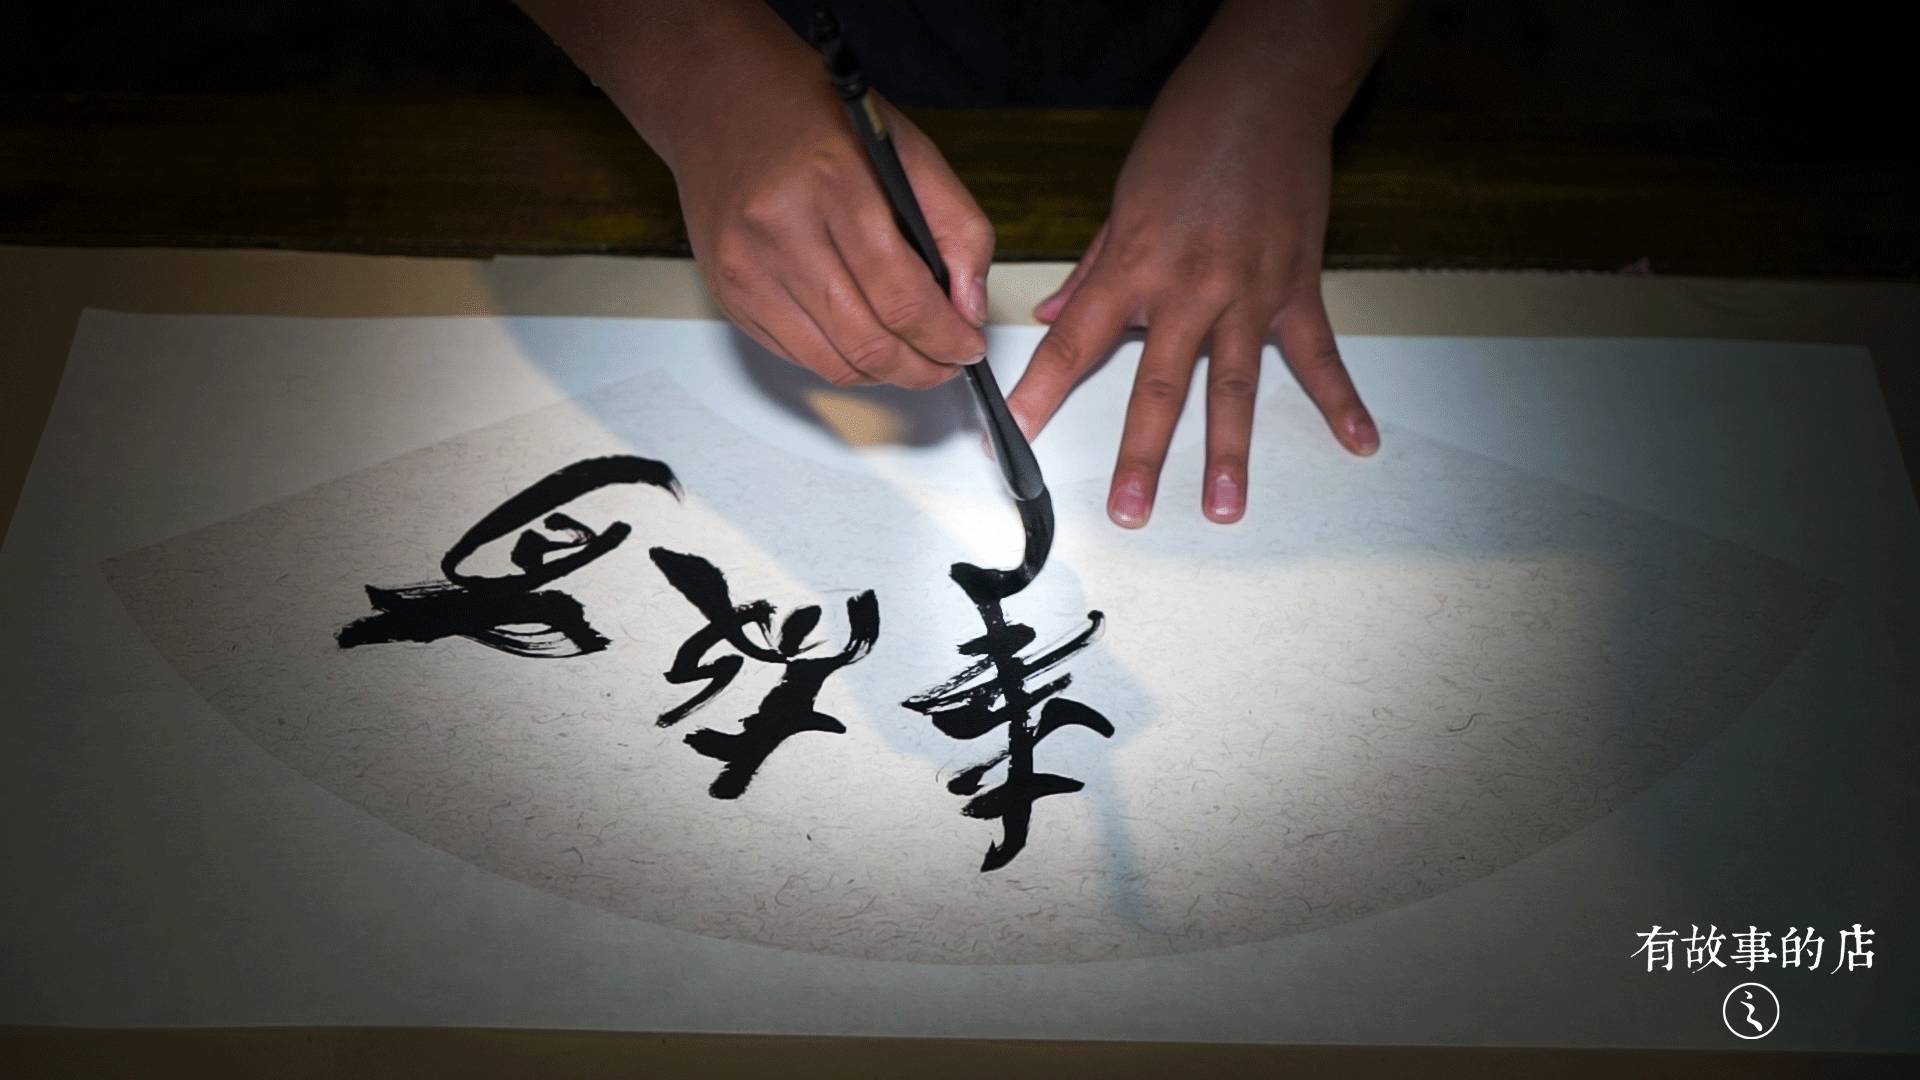 有故事
有故事的店
之